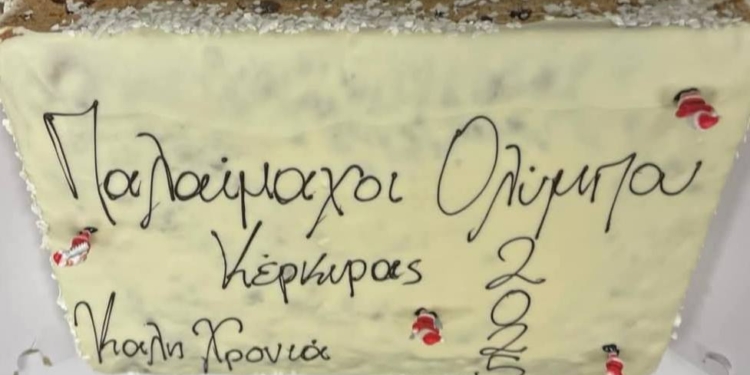 Παλαίμαχοι Ολύμπου
Κέρκυρας 2
0
Καλη Χρονιά 2
5